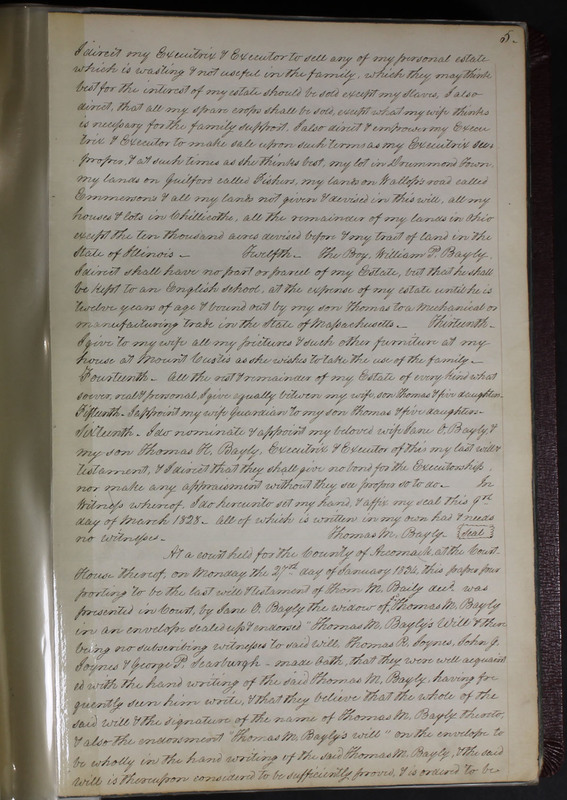 5.
I direct my Executrix & Executor to sell any of my personal estate
which is wasting & not useful in the family, which they may think
best for the interest of my estate should be sold except my slaves, I also
direct, that all my crops shall be sold, except what my wife thinks
is necessary for the family support. I also direct & empower my Execu
trix & Executor to make sale upon such terms as my Executrix sees
proper, & at such times as she thinks best, my lot in Drummond Town,
my lands on Guilford called Fishers, my lands on Wallops road called
Emmersons & all my lands not given & devised in this will, all my
houses & lots in Chillicothe, all the remainder of my lands in Ohio
except the ten thousand acres devised before & my tract of land in the
State of Illinois – Twelfth – The Boy, William P. Bayly,
I direct shall have no part or parcel of my Estate, but that he shall
be kept to an English school, at the expense of my estate until he is
twelve years of age & bound out by my son Thomas to a Mechanical or
manufacturing trade in the State of Massachusetts – Thirteenth –
I give to my wife all my pictures & such other furniture at my
house at Mount Custis as she wishes to take the use of the family –
Fourteenth – All the rest & remainder of my Estate of every kind what
soever, real & personal, I give equally between my wife, son Thomas & five daughters –
Fifteenth – I appoint my wife Guardian to my son Thomas & five daughters –
Sixteenth – I do nominate & appoint my beloved wife Jane O. Bayly &
my son Thomas H. Bayly, Executrix & Executor of this my last will &
testament, & I direct that they shall give no bond for the Executorship,
nor make any appraisment without they see proper so to do – In
Witness whereof, I do hereunto set my hand, & affix my seal this 9th
day of March 1828 – All of which is written in my own hand & needs
no witnesses – Thomas M. Bayly [Seal]
At a court held for the County of Accomack, at the Court
House thereof, on Monday the 27th day of January 1834, this paper pur
porting to be the last will & testament of Thom M. Baily decd. was
presented in Court, by Jane O. Bayly the widow of Thomas M. Bayly
in an envelope sealed up & endorsed "Thomas M. Bayly's Will" & there
being no subscribing witnesses to said will, Thomas R. Joynes, John G.
Joynes & George P. Scarburgh – made Oath, that they were well acquaint
ed with the hand writing of the said Thomas M. Bayly, having fre
quently seen him write, & that they believe that the whole of the
said will & the signature of the name of Thomas M. Bayly thereto,
& also the endorsment "Thomas M. Bayly's will" on the envelope to
be wholly in the hand writing of the said Thomas M. Bayly, & the said
will is thereupon considered to be sufficiently proved, & is ordered to be